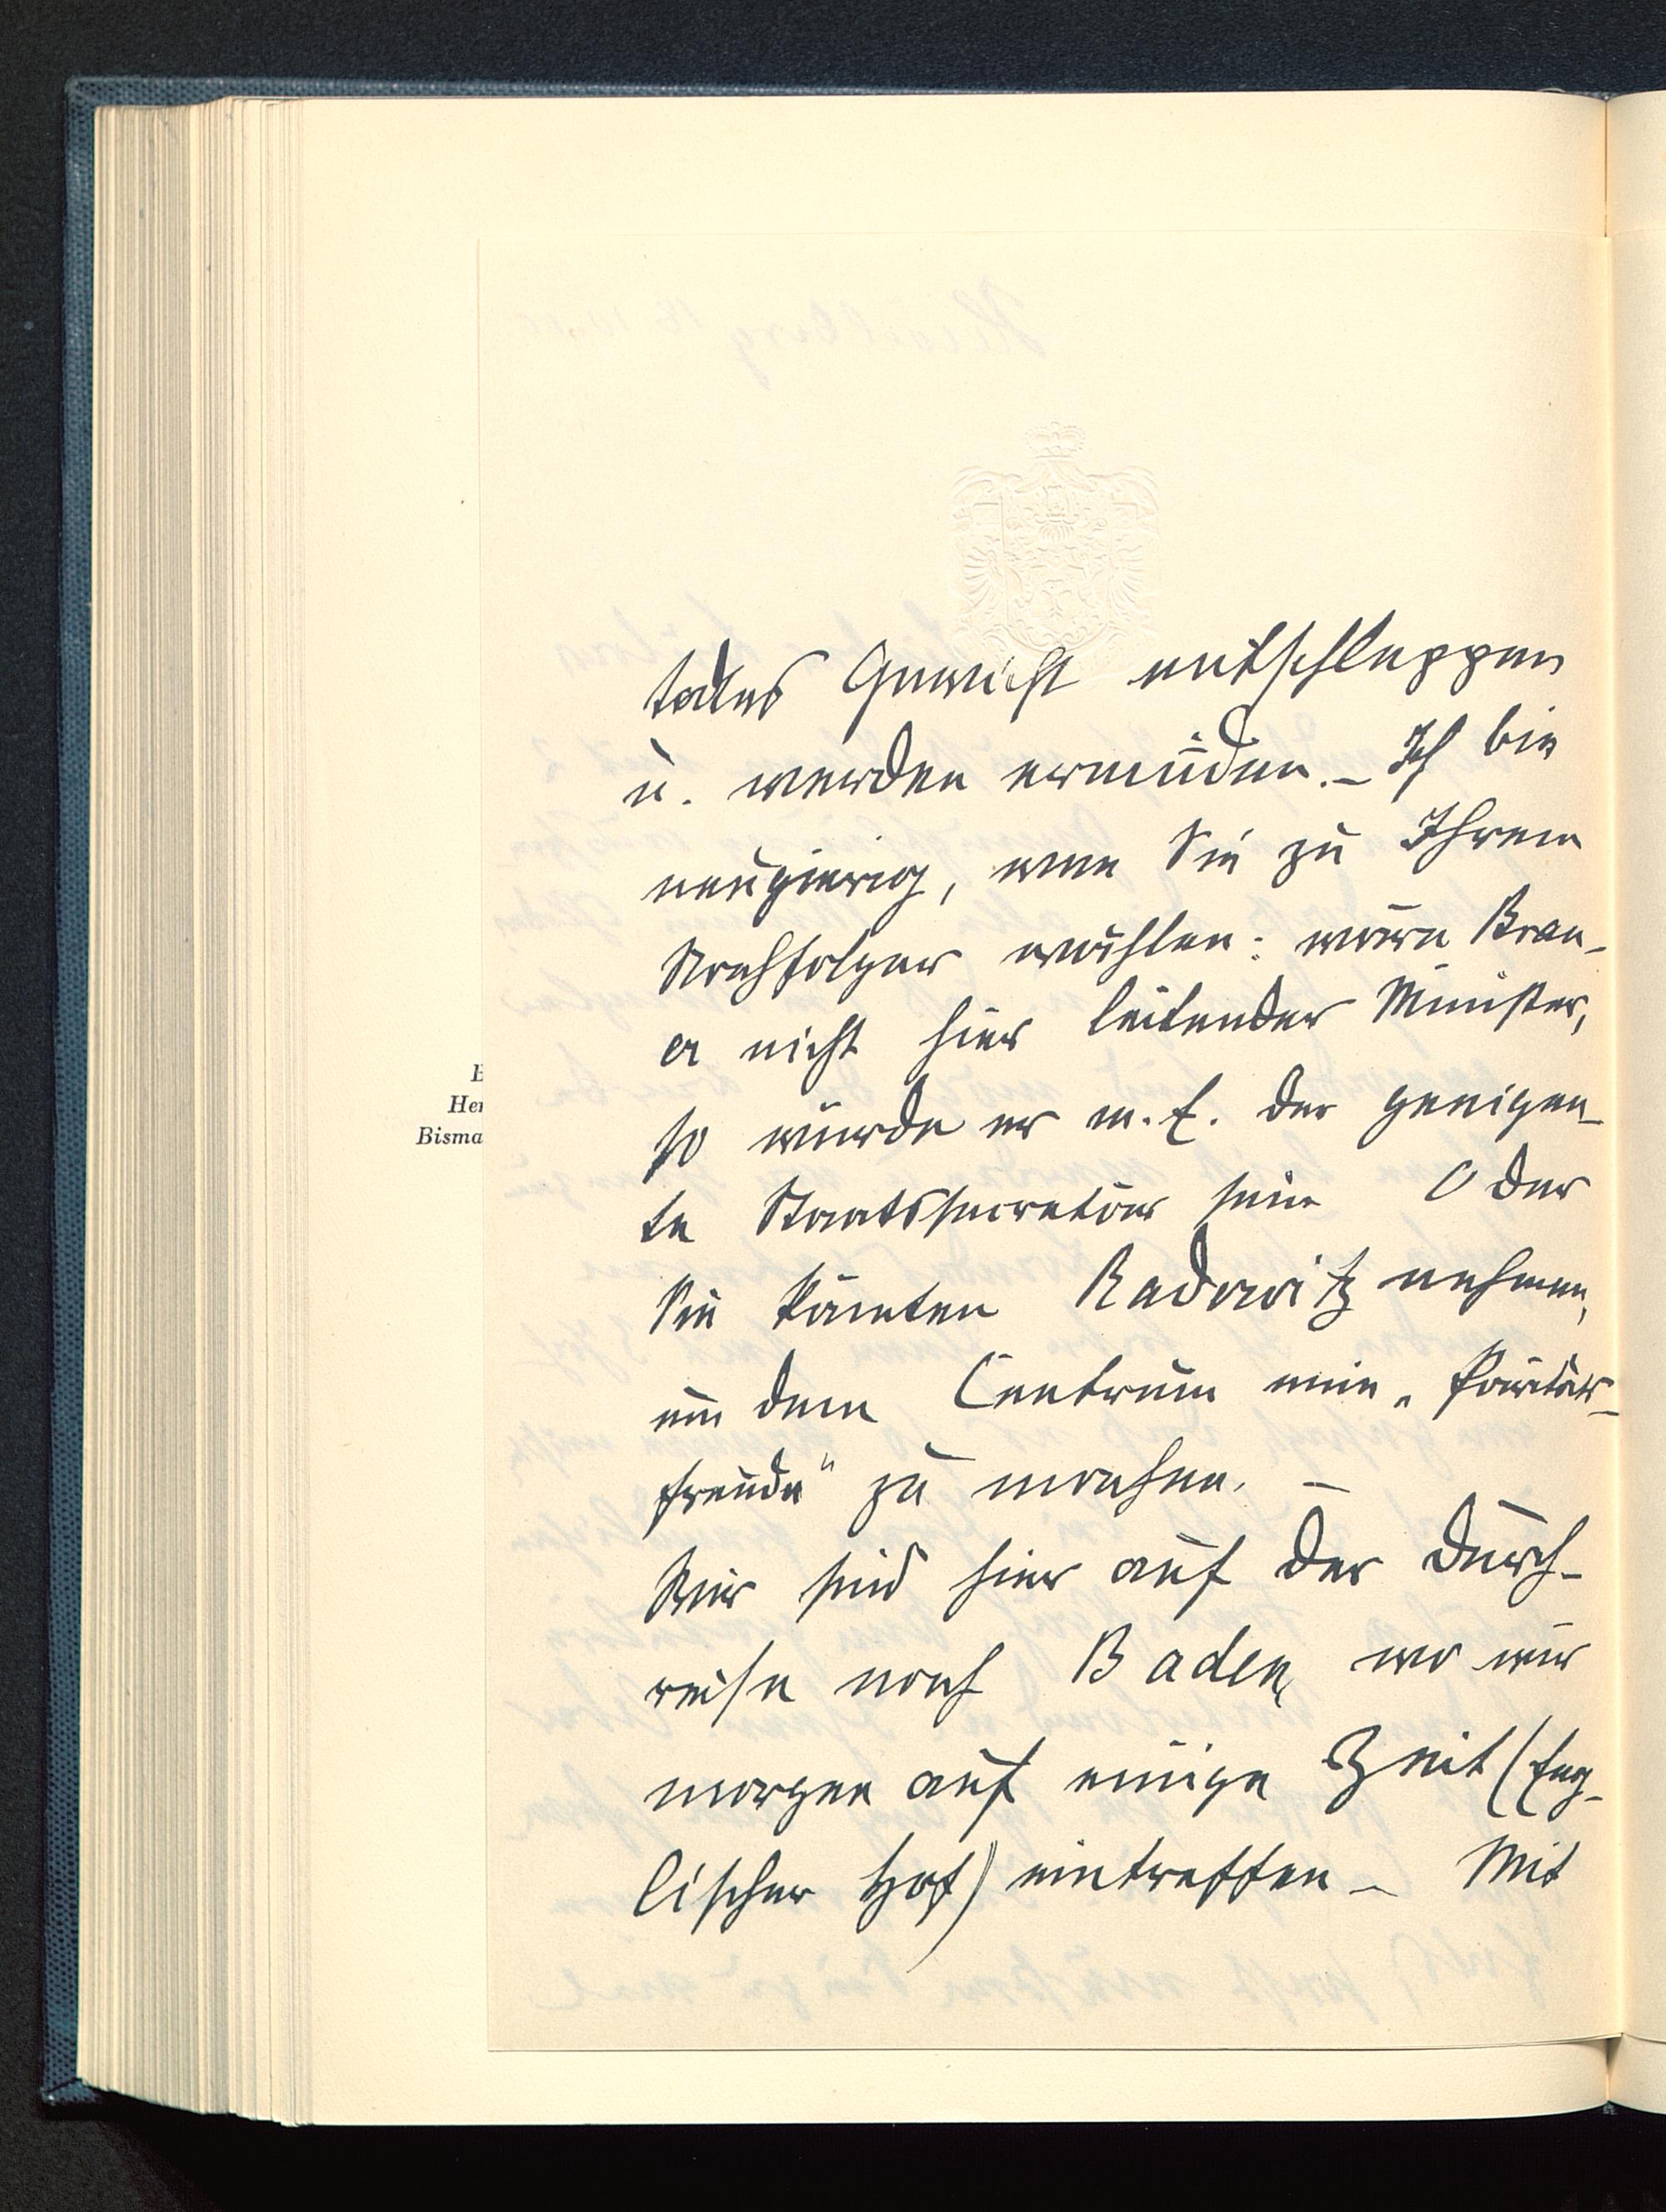 todtes Gewicht entschleppen
u. werden ermüden. – Ich bin
neugierig, wen Sie zu Ihrem
Nachfolger wählen: wäre Brau-
er nicht hier leitender Minister,
so würde er m. E. der geeigen-
te Staatssecretär sein Oder
Sie könnten Radowitz nehmen,
um dem Centrum eine „Paritäts-
freude“ zu machen. –
Wir sind hier auf der Durch-
reise nach Baden, wo wir
morgen auf einige Zeit (Eng-
lischer Hof) eintreffen – Mit
Her
Bisma